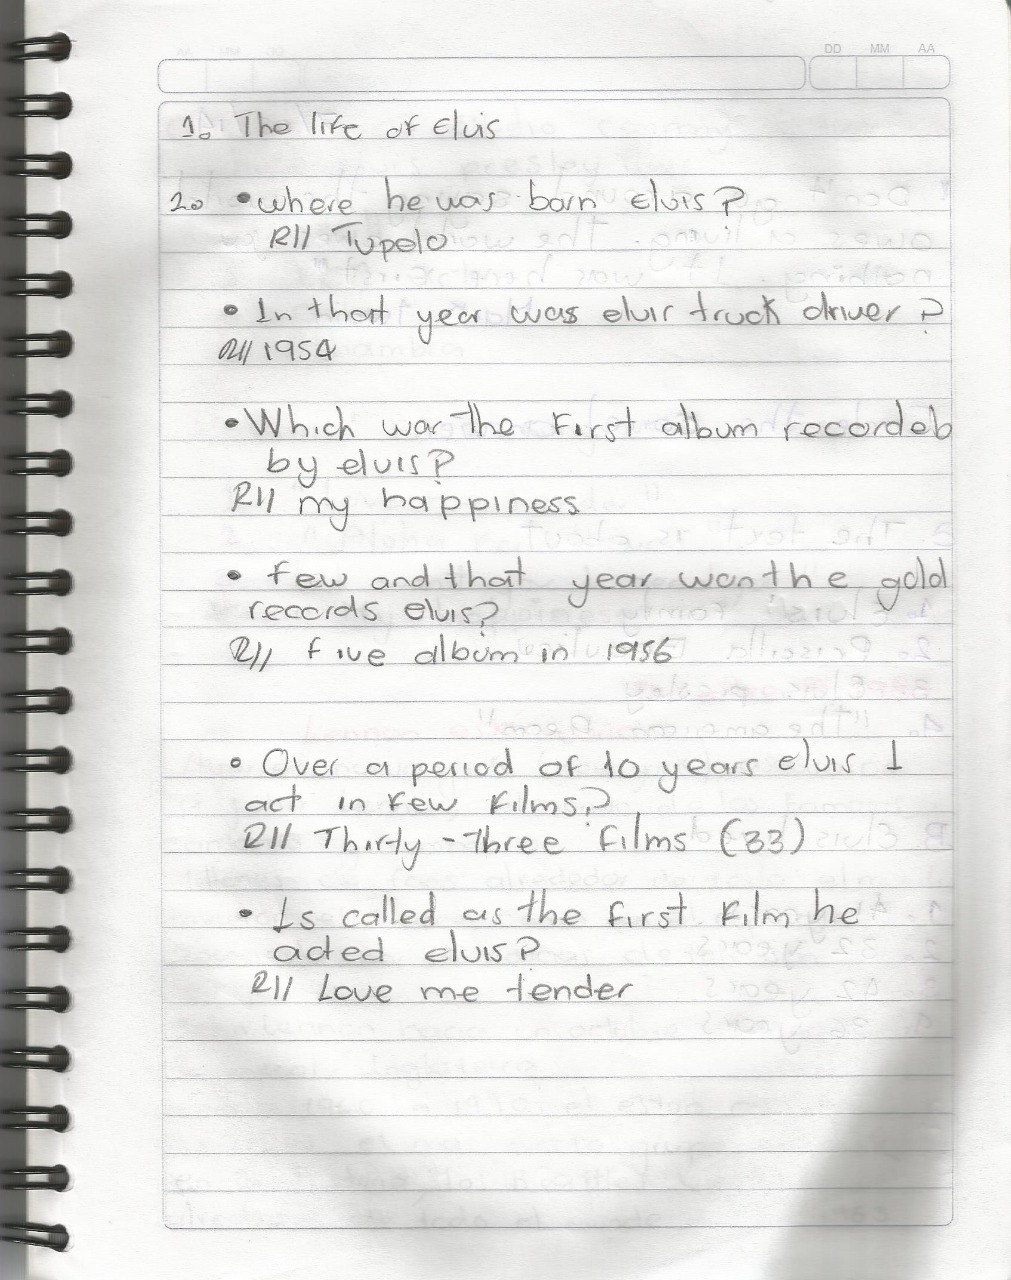 DD MM AA
1. The life of Elvis
2. • where he was born Elvis?
R// Tupelo
• In that year was elvir truck driver?
R// 1954
• Which war the First album recordeb
by elvis?
R// my happiness
• few and that year won the gold
records elvis?
R// five album in 1956
• Over a period of 10 years elvis 1
act in few films?
R// Thirty-Three films (33)
• Is called as the first film he
acted elvis?
R// Love me tender